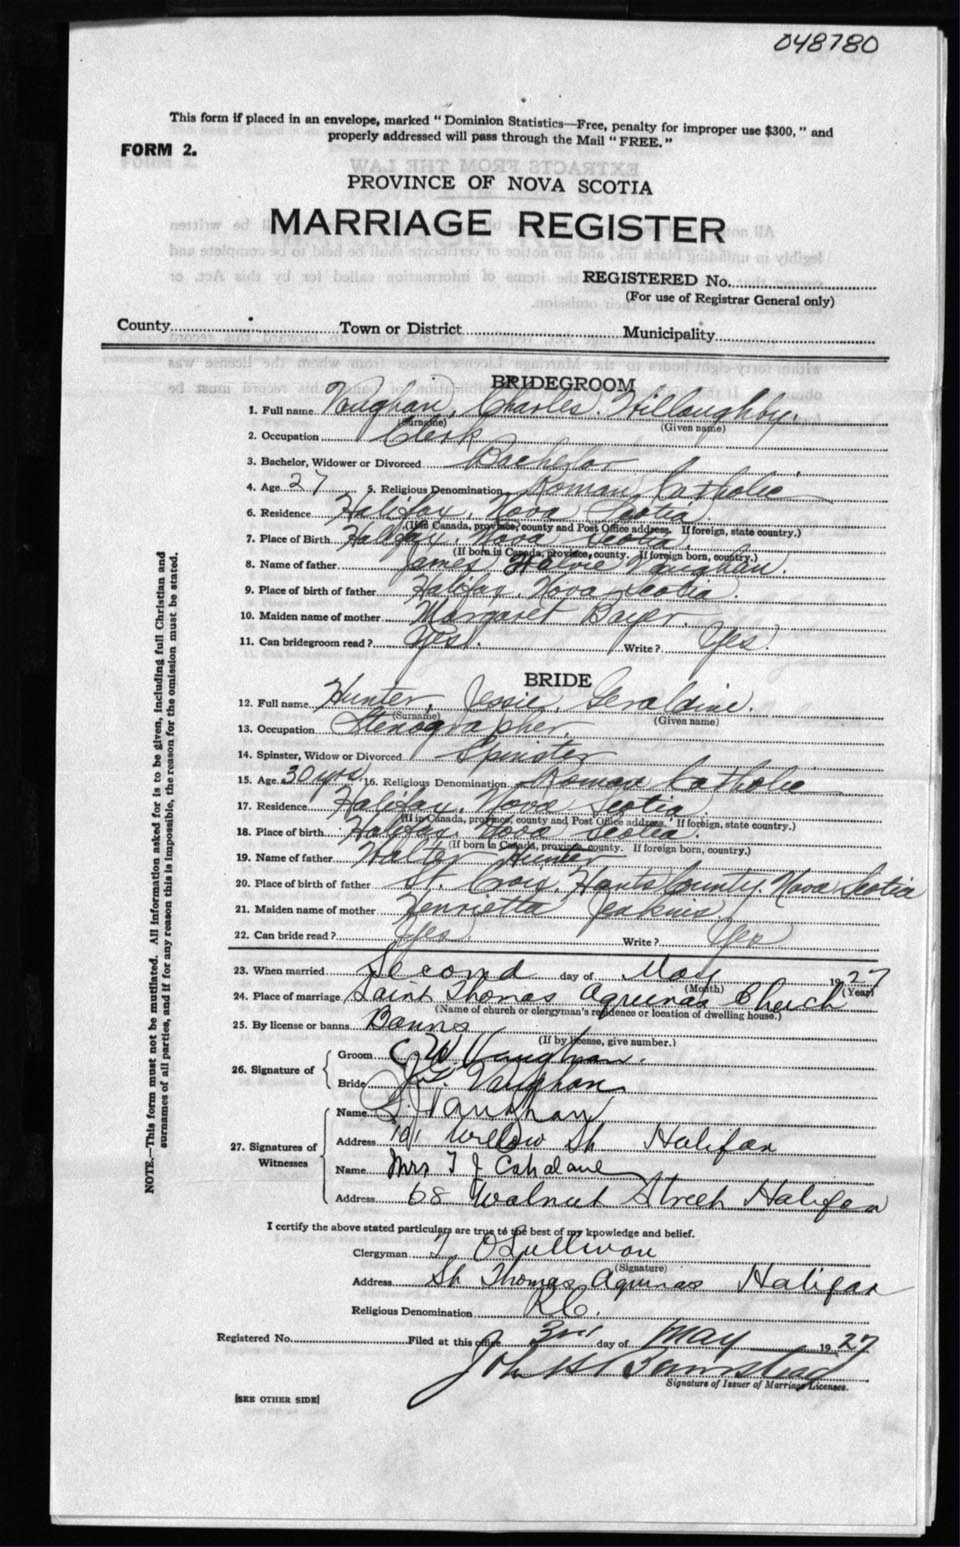 048780
This form if placed in an envelope, marked "Dominion Statistics—Free, penalty for improper use $300," and
properly addressed will pass through the Mail "FREE."
FORM 2.
PROVINCE OF NOVA SCOTIA
MARRIAGE REGISTER
REGISTERED No.
(For use of Registrar General only)
County Town or District Municipality
BRIDEGROOM
1. Full name Vaughan, Charles. Willoughby.
(Surname) (Given name)
2. Occupation Clerk
3. Bachelor, Widower or Divorced Bachelor
4. Age 27 5. Religious Denomination Roman Catholic
6. Residence Halifax, Nova Scotia
(If in Canada, province, county and Post Office address. If foreign, state country.)
7. Place of Birth Halifax, Nova Scotia.
(If born in Canada, province, county. If foreign born, country.)
8. Name of father James Vaughan.
9. Place of birth of father Halifax Nova Scotia.
10. Maiden name of mother Margaret Bayer.
11. Can bridegroom read? Yes. Write? Yes.
BRIDE
12. Full name Hunter, Jessie, Geraldine.
(Surname) (Given name)
13. Occupation Stenographer.
14. Spinster, Widow or Divorced Spinster
15. Age 30 yrs 16. Religious Denomination Roman Catholic
17. Residence Halifax, Nova Scotia
(If in Canada, province, county and Post Office address. If foreign, state country.)
18. Place of birth Halifax. Nova Scotia.
(If born in Canada, province, county. If foreign born, country.)
19. Name of father Walter Hunter
20. Place of birth of father St. Croix, Hants County. Nova Scotia
21. Maiden name of mother Henrietta Jenkins
22. Can bride read? Yes Write? Yes
23. When married Second day of May 1927
(Month) (Year)
24. Place of marriage Saint Thomas Aquinas Church
(Name of church or clergyman's residence or location of dwelling house.)
25. By license or banns Banns
(If by license, give number.)
26. Signature of Groom C W Vaughan.
Bride J.G. Vaughan
27. Signatures of Witnesses Name Vaughan
Address 191 Willow St Halifax
Name Mrs T J Cahalane
Address 68 Walnut Street Halifax
I certify the above stated particulars are true to the best of my kpowledge and belief.
Clergyman T O'Sullivan
(Signature)
Address St Thomas Aquinas Halifax
Religious Denomination R.C.
Registered No. Filed at this office 3rd day of May 1927
John
Signature of Issuer of Marriage Licenses.
[SEE OTHER SIDE]
NOTE.—This form must not be mutilated. All information asked for is to be given, including full Christian and
surnames of all parties, and if for any reason this is impossible, the reason for the omission must be stated.